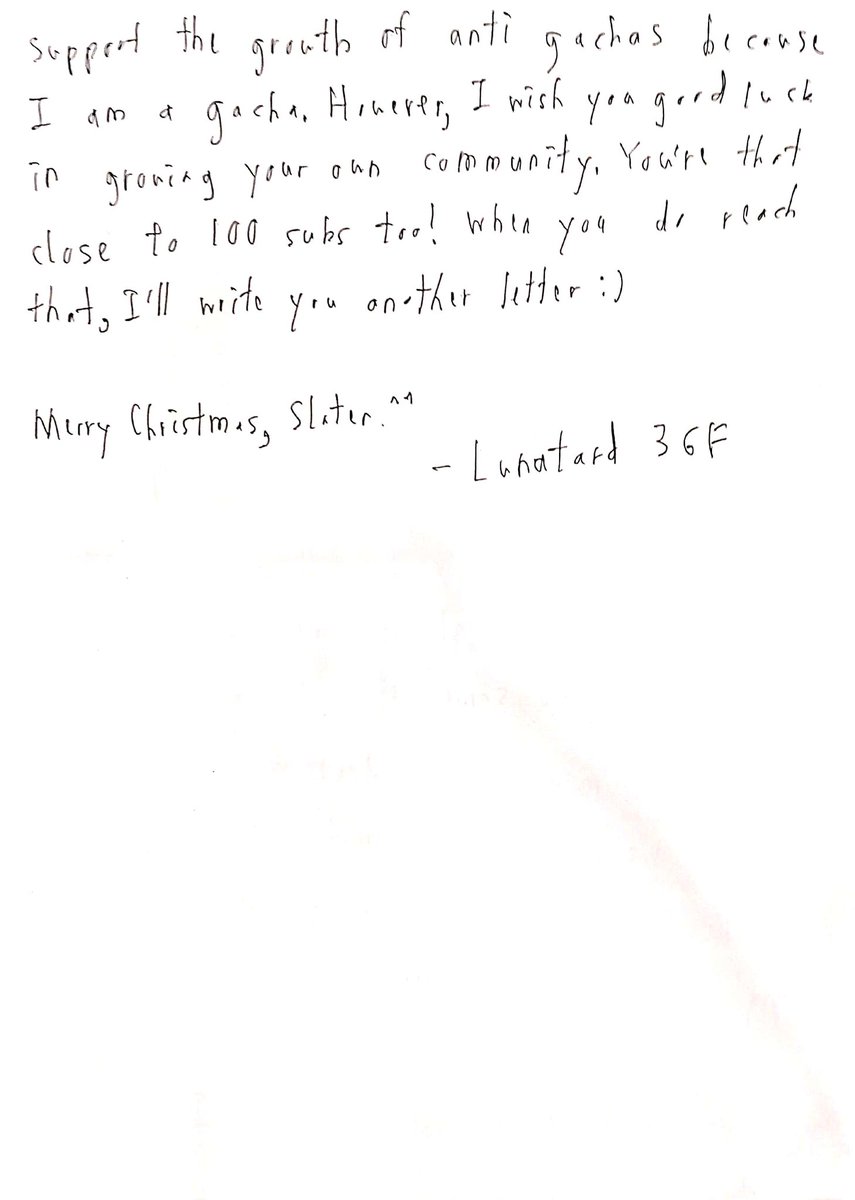 support the growth of anti gachas because
I am a gacha. However, I wish you good luck
in growing your own community. You're that
close to 100 subs too! When you do reach
that, I'll write you another letter :)
Merry Christmas, Slater. ^^
- Lunatard 36F